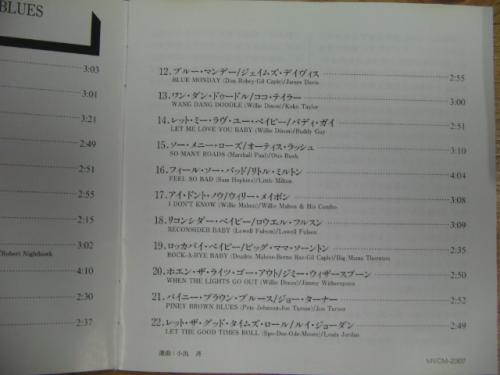 BLUES
3:03
3:01
3:21
2:49
2:51
2:55
2:15
Robert Nighthawk 3:02
4:10
2:30
2:37
12. ブルー・マンデー/ジェイムズ・デイヴィス 2:55
BLUE MONDAY (Don Robey-Gil Caple)/James Davis
13. ワン・ダン・ドゥードル/ココ・テイラー 3:00
WANG DANG DOODLE (Willie Dixon)/Koko Taylor
14. レット・ミー・ラヴ・ユー・ベイビー/バディ・ガイ 2:51
LET ME LOVE YOU BABY (Willie Dixon)/Buddy Guy
15. ソー・メニー・ローズ/オーティス・ラッシュ 3:10
SO MANY ROADS (Marshall Paul)/Otis Rush
16. フィール・ソー・バッド/リトル・ミルトン 4:04
FEEL SO BAD (Sam Hopkins)/Little Milton
17. アイ・ドント・ノウ/ウィリー・メイボン 3:08
I DON'T KNOW (Willie Mabon)/Willie Mabon & His Combo
18. リコンシダー・ベイビー/ロウエル・フルスン 3:09
RECONSIDER BABY (Lowell Fulson)/Lowell Fulson
19. ロッカバイ・ベイビー/ビッグ・ママ・ソーントン 2:35
ROCK-A-BYE BABY (Deadric Malone-Berna Rae-Gil Caple)/Big Mama Thornton
20. ホエン・ザ・ライツ・ゴー・アウト/ジミー・ウィザースプーン 2:50
WHEN THE LIGHTS GO OUT (Willie Dixon)/Jimmy Witherspoon
21. パイニー・ブラウン・ブルース/ジョー・ターナー 2:52
PINEY BROWN BLUES (Pete Johnson-Joe Turner)/Joe Turner
22. レット・ザ・グッド・タイムズ・ロール/ルイ・ジョーダン 2:49
LET THE GOOD TIMES ROLL (Spo-Dee-Ode-Moore)/Louis Jordan
選曲：小出 斉
MVCM-22007